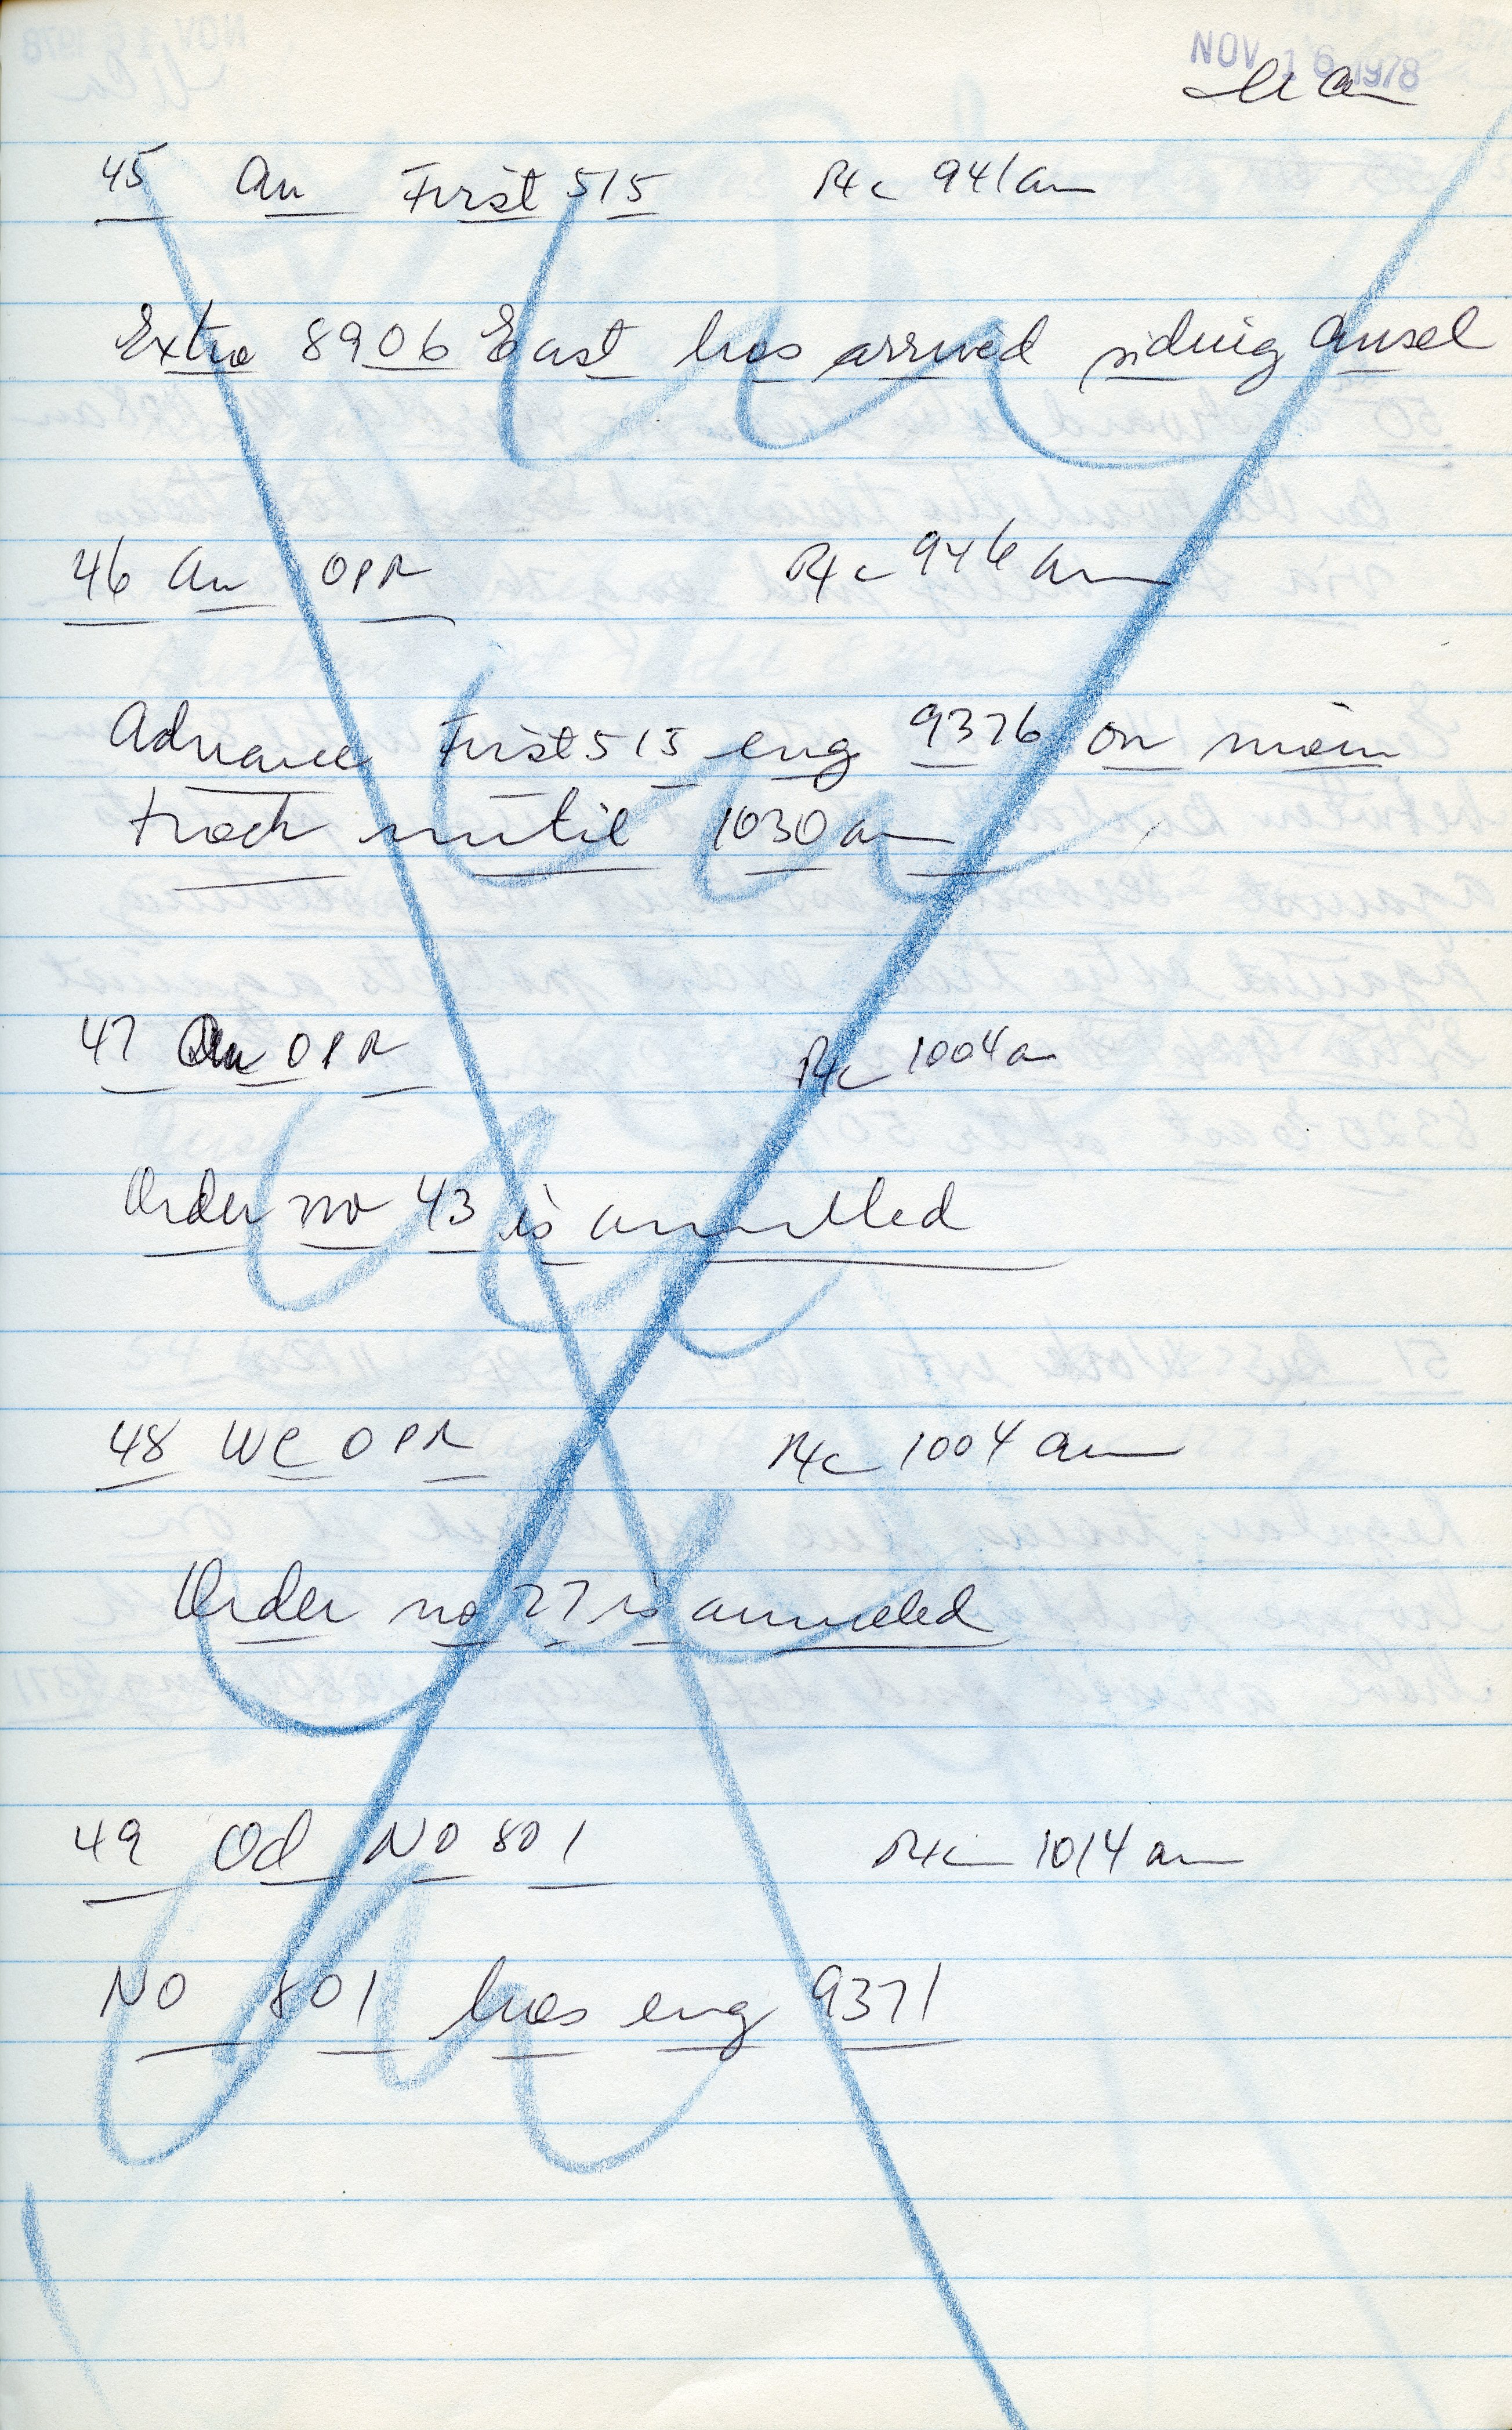 NOV 16 1978
45 An First 515 R4c 941am
Extra 8906 East has arrived siding Ansel
46 An OPR R4c 946am
Advance First 515 eng 9376 on main
track until 1030am
47 An OPR R4c 1004a
Order no 43 is annulled
48 WC OPR R4c 1004am
Order no 27 is annulled
49 Od No 801 R4c 1014am
No 801 has eng 9371